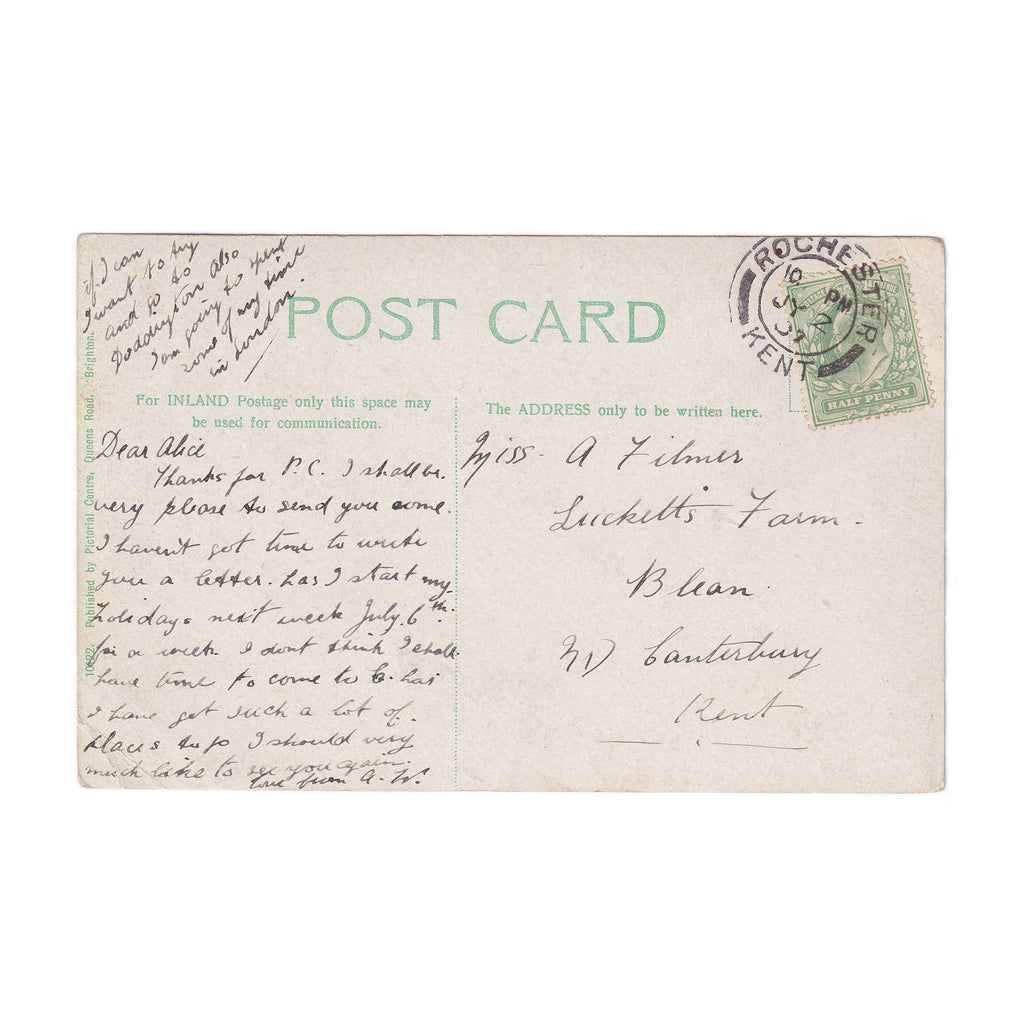 if I can
I want to try
and go to
Doddington also
I am going to spent
some of my time
in London.
POST CARD
ROCHESTER
KENT
PM
JY 2
HALF PENNY
For INLAND Postage only this space may
be used for communication.
The ADDRESS only to be written here.
Dear Alice
Thanks for P.C. I shall be
very please to send you some.
I haven't got time to write
you a letter. has I start my
holidays next week July. 6th.
for a week I dont think I shall
have time to come to C. has
I have got such a lot of.
places to go I should very
much like to see you again.
love from A. W.
Miss. A Filmer
Lucketts Farm.
Blean.
Canterbury
Kent
Published by Pictorial Centre, Queens Road, Brighton.